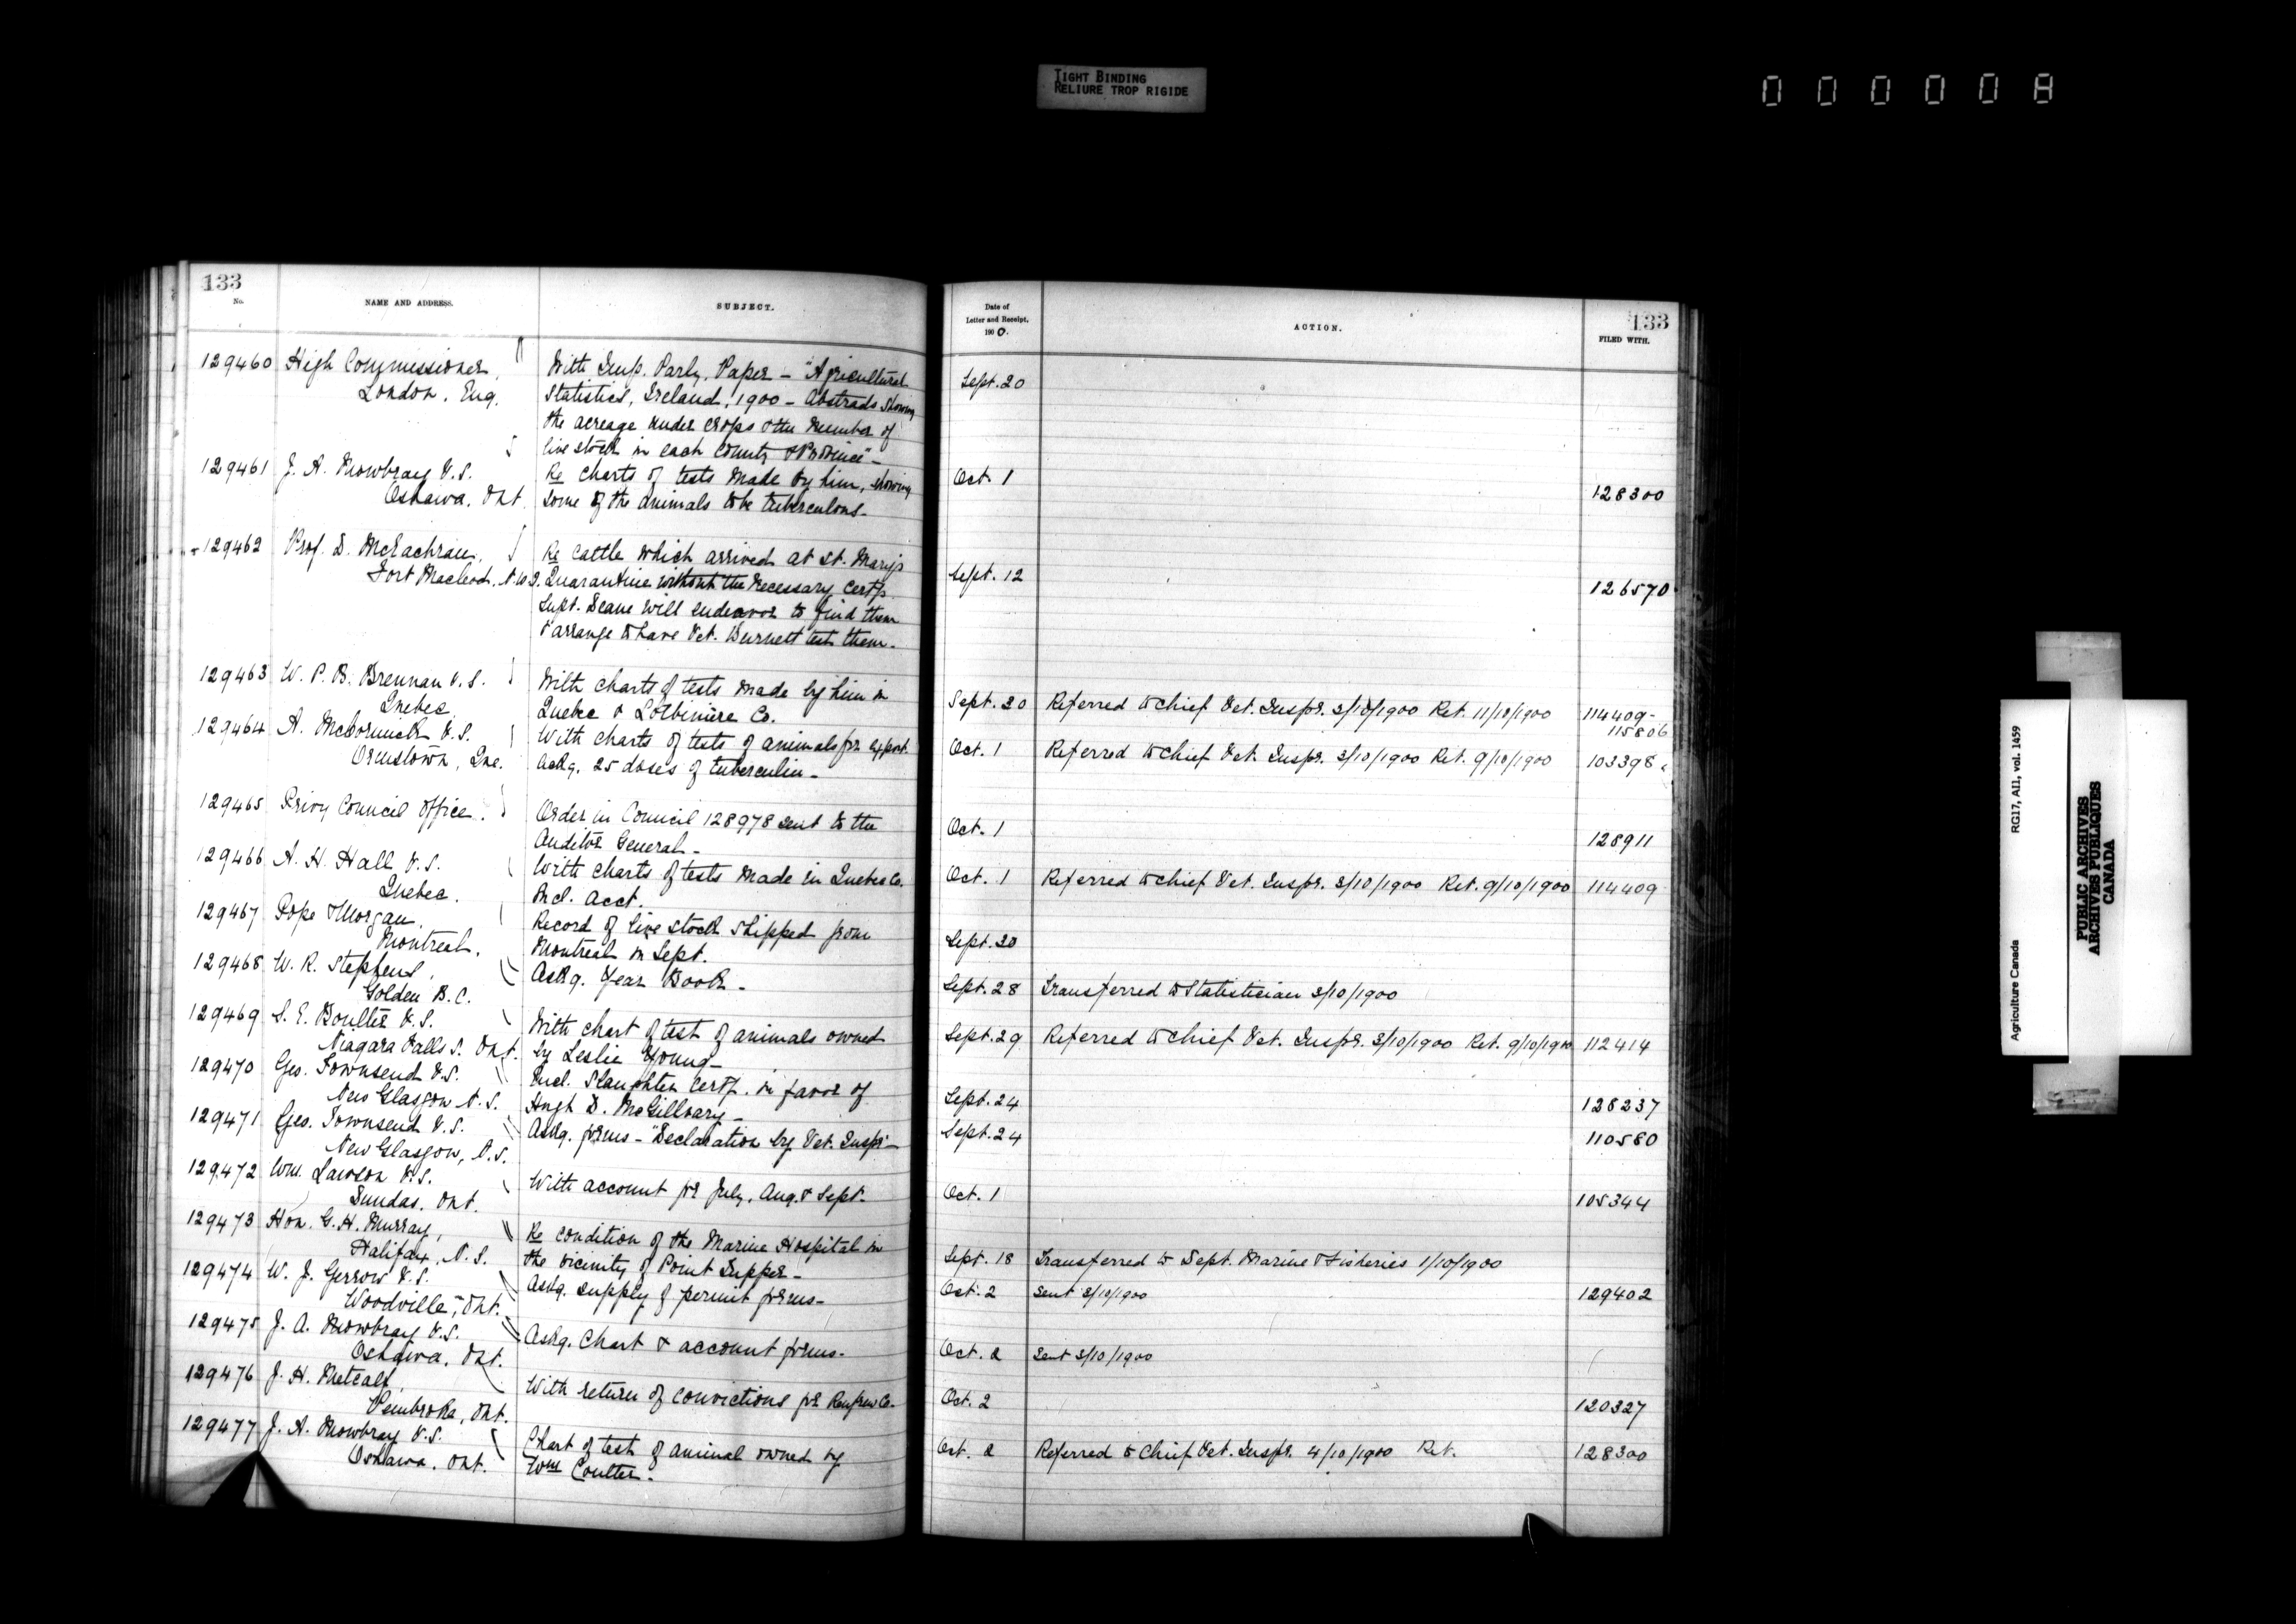 TIGHT BINDING
RELIURE TROP RIGIDE
00000A
133
No.
NAME AND ADDRESS.
SUBJECT.
Date of
Letter and Receipt,
1900.
ACTION.
133
FILED WITH.
129460 High Commissioner,
London, Eng.
With Imp. Parly. Paper - "Agricultural
Statistics, Ireland, 1900 - Abstracts showing
the acreage under crops & the number of
live stock in each County & Province" -
Sept. 20
129461 J. A. Mowbray V.S.
Oshawa, Ont.
Re charts of tests made by him, showing
some of the animals to be tuberculous.
Oct. 1
128300
129462 Prof. D. McEachran,
Fort Macleod, N.W.T.
Re cattle which arrived at St. Mary's
Quarantine without the necessary certfs.
Supt. Deane will endeavor to find them
& arrange to have Vet. Burnett test them.
Sept. 12
126570
129463 W. P. B. Brennan V.S.
Quebec
With charts of tests made by him in
Quebec & Lotbinière Co.
Sept. 20 Referred to Chief Vet. Inspr. 3/10/1900 Ret. 11/10/1900
114409-
115806
129464 A. McCormick V.S.
Ormstown, Que.
With charts of tests of animals for export.
Askg. 25 doses of tuberculin -
Oct. 1 Referred to Chief Vet. Inspr. 3/10/1900 Ret. 9/10/1900 103398
129465 Privy Council Office.
Order in Council 128978 sent to the
Auditor General -
Oct. 1
128911
129466 A. H. Hall V.S.
Quebec.
With charts of tests made in Quebec Co.
Incl. acct.
Oct. 1 Referred to Chief Vet. Inspr. 3/10/1900 Ret. 9/10/1900 114409
129467 Pope & Morgan,
Montreal.
Record of live stock shipped from
Montreal in Sept.
Sept. 30
129468 W. R. Stephens,
Golden B.C.
Askg. Year Book -
Sept. 28 Transferred to Statistician 3/10/1900
129469 S. E. Boulter V.S.
Niagara Falls S. Ont.
With chart of test of animals owned
by Leslie Young -
Sept. 29 Referred to Chief Vet. Inspr. 3/10/1900 Ret. 9/10/1900 112414
129470 Geo. Townsend V.S.
New Glasgow N.S.
Incl. Slaughter certf. in favor of
Hugh D. McGillvary -
Sept. 24
128237
129471 Geo. Townsend V.S.
New Glasgow, N.S.
Askg. forms - "Declaration by Vet. Inspr" -
Sept. 24
110580
129472 Wm. Lawson V.S.
Dundas, Ont.
With account for July, Aug. & Sept.
Oct. 1
105344
129473 Hon. G. H. Murray,
Halifax, N.S.
Re condition of the Marine Hospital in
the vicinity of Point Tupper -
Sept. 18 Transferred to Dept. Marine & Fisheries 1/10/1900
129474 W. J. Gerrow V.S.
Woodville, Ont.
Askg. supply of permit forms -
Oct. 2 Sent 3/10/1900
129402
129475 J. A. Mowbray V.S.
Oshawa, Ont.
Askg. Chart & account forms -
Oct. 2 Sent 3/10/1900
129476 J. H. Metcalf,
Pembroke, Ont.
With return of convictions for Renfrew Co. -
Oct. 2
120327
129477 J. A. Mowbray V.S.
Oshawa, Ont.
Chart of test of animal owned by
Wm Coulter -
Oct. 2 Referred to Chief Vet. Inspr. 4/10/1900 Ret. 128300
Agriculture Canada
RG17, AI1, vol. 1459
PUBLIC ARCHIVES
ARCHIVES PUBLIQUES
CANADA